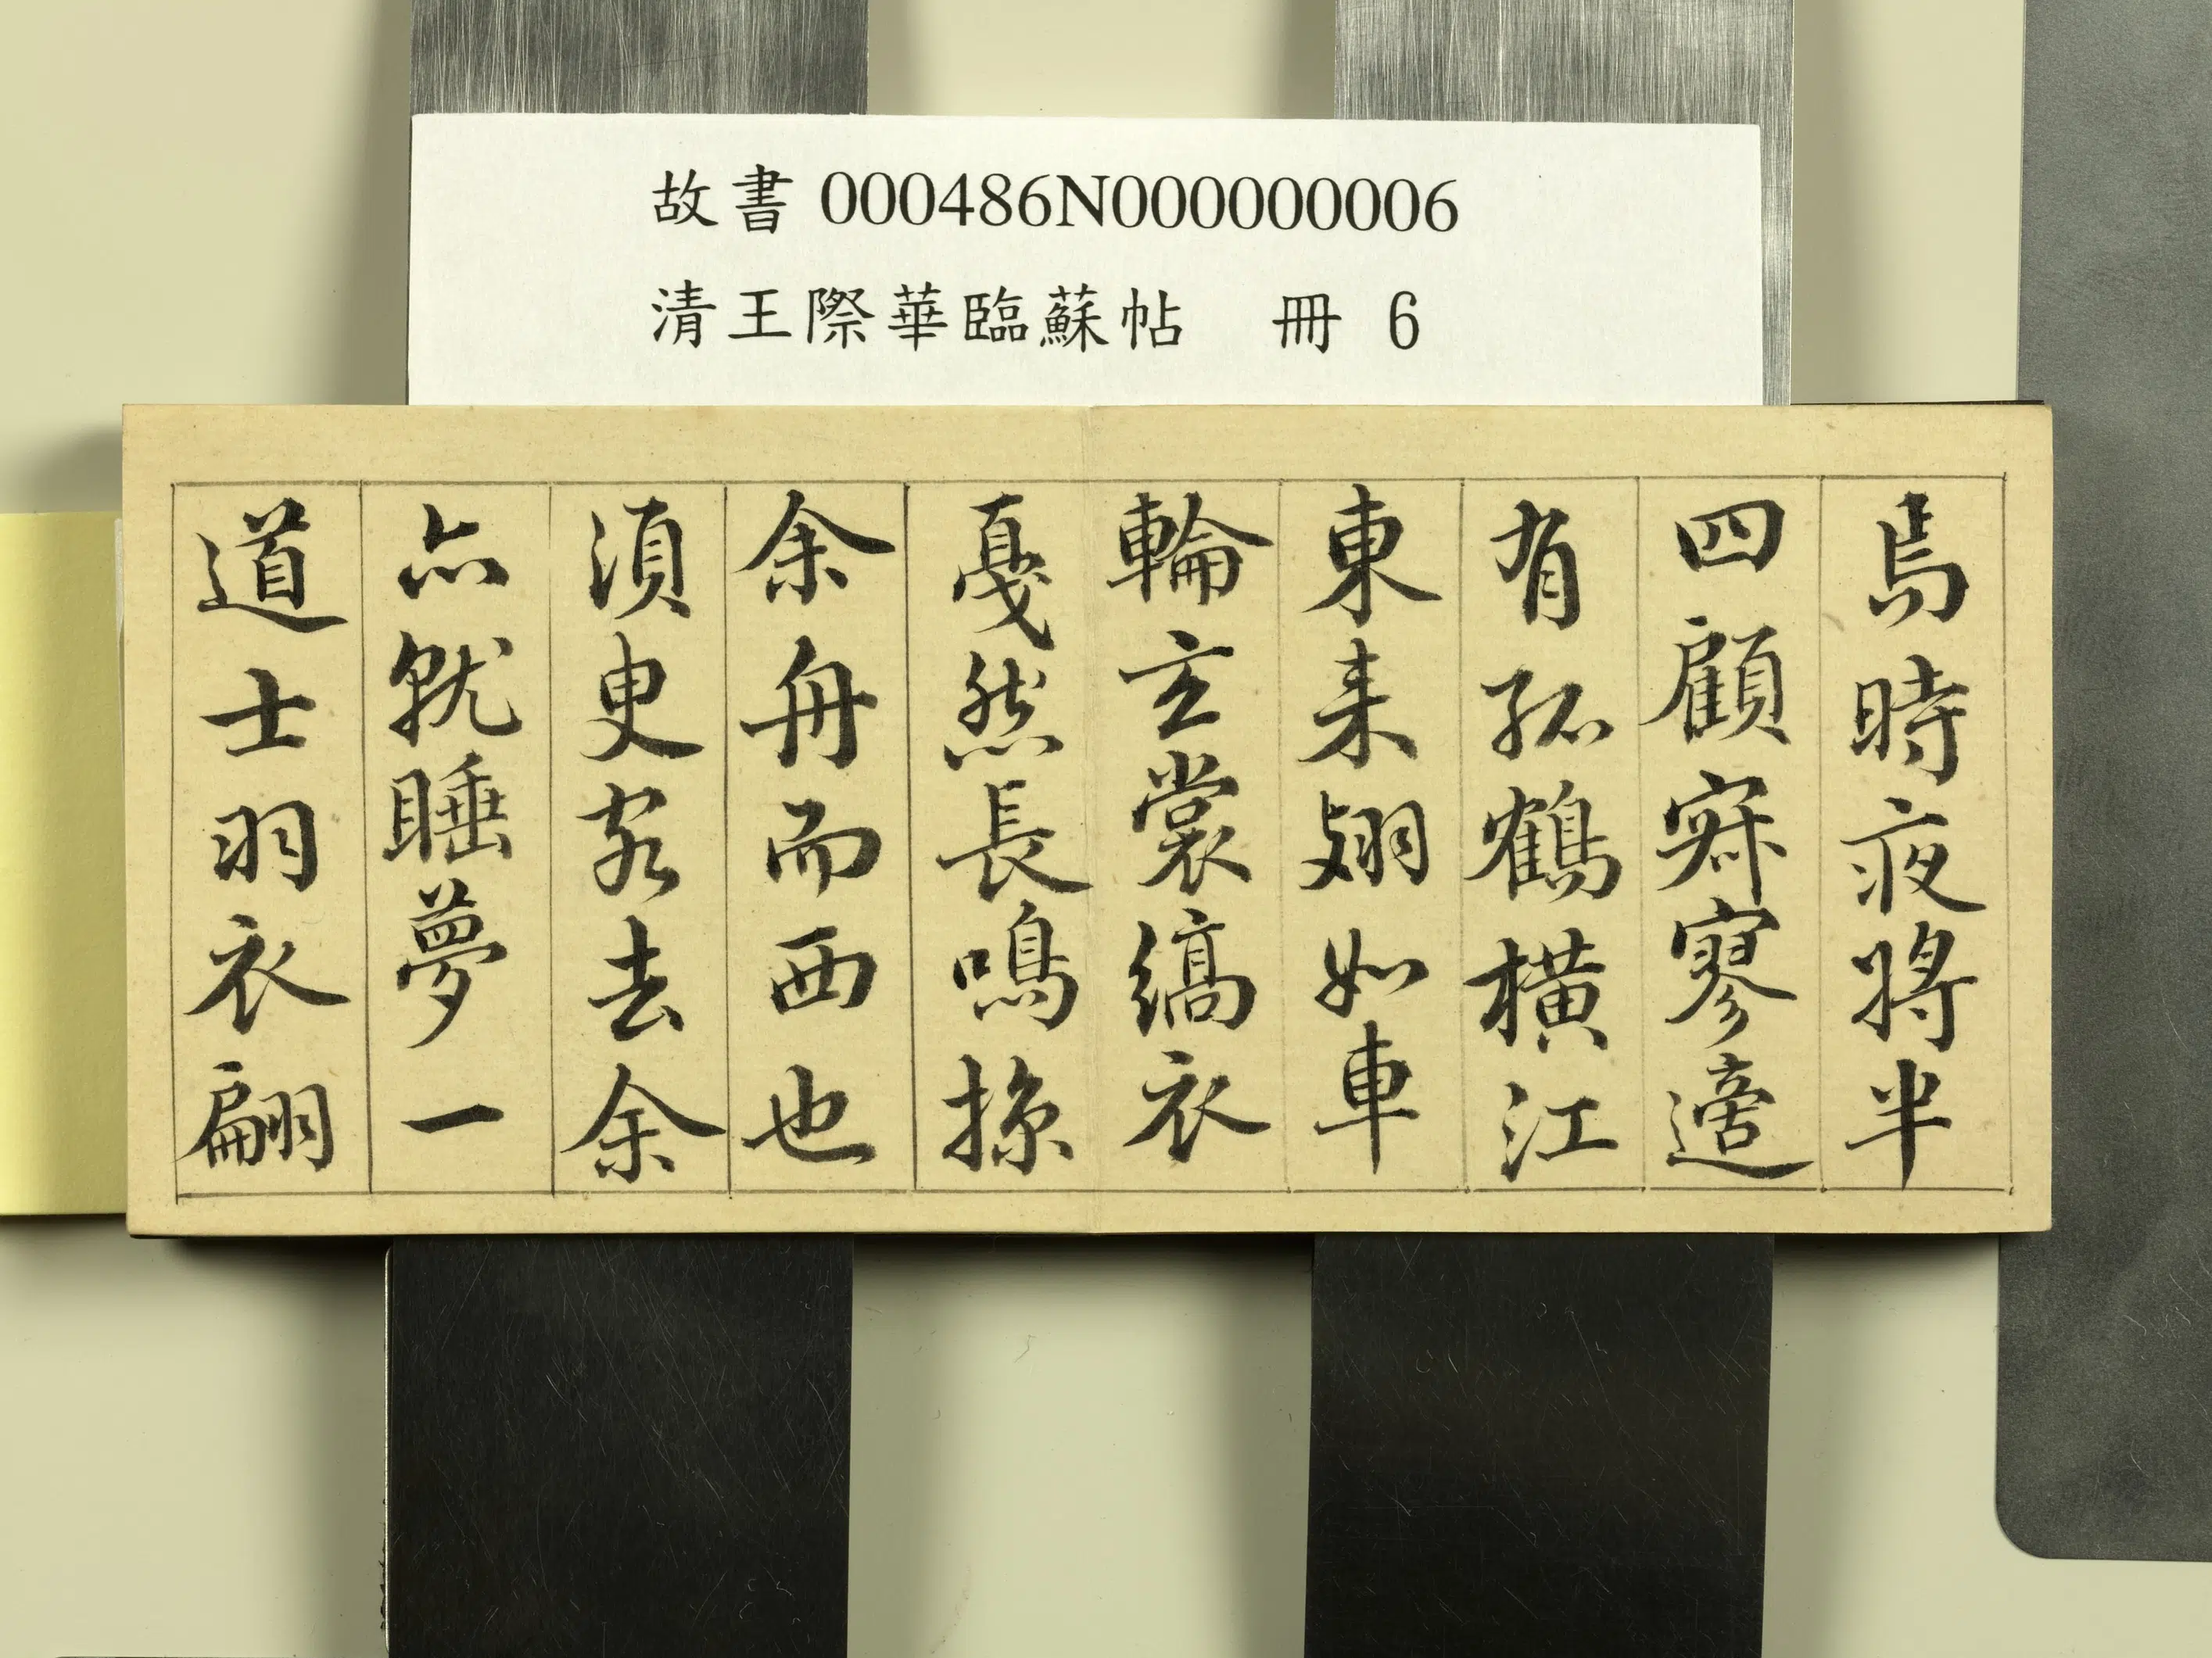 故書 000486N000000006
清王際華臨蘇帖 冊 6
焉時夜將半
四顧寂寥適
有孤鶴橫江
東来翅如車
輪玄裳縞衣
戞然長鳴掠
余舟而西也
湏臾客去余
亦就睡夢一
道士羽衣翩